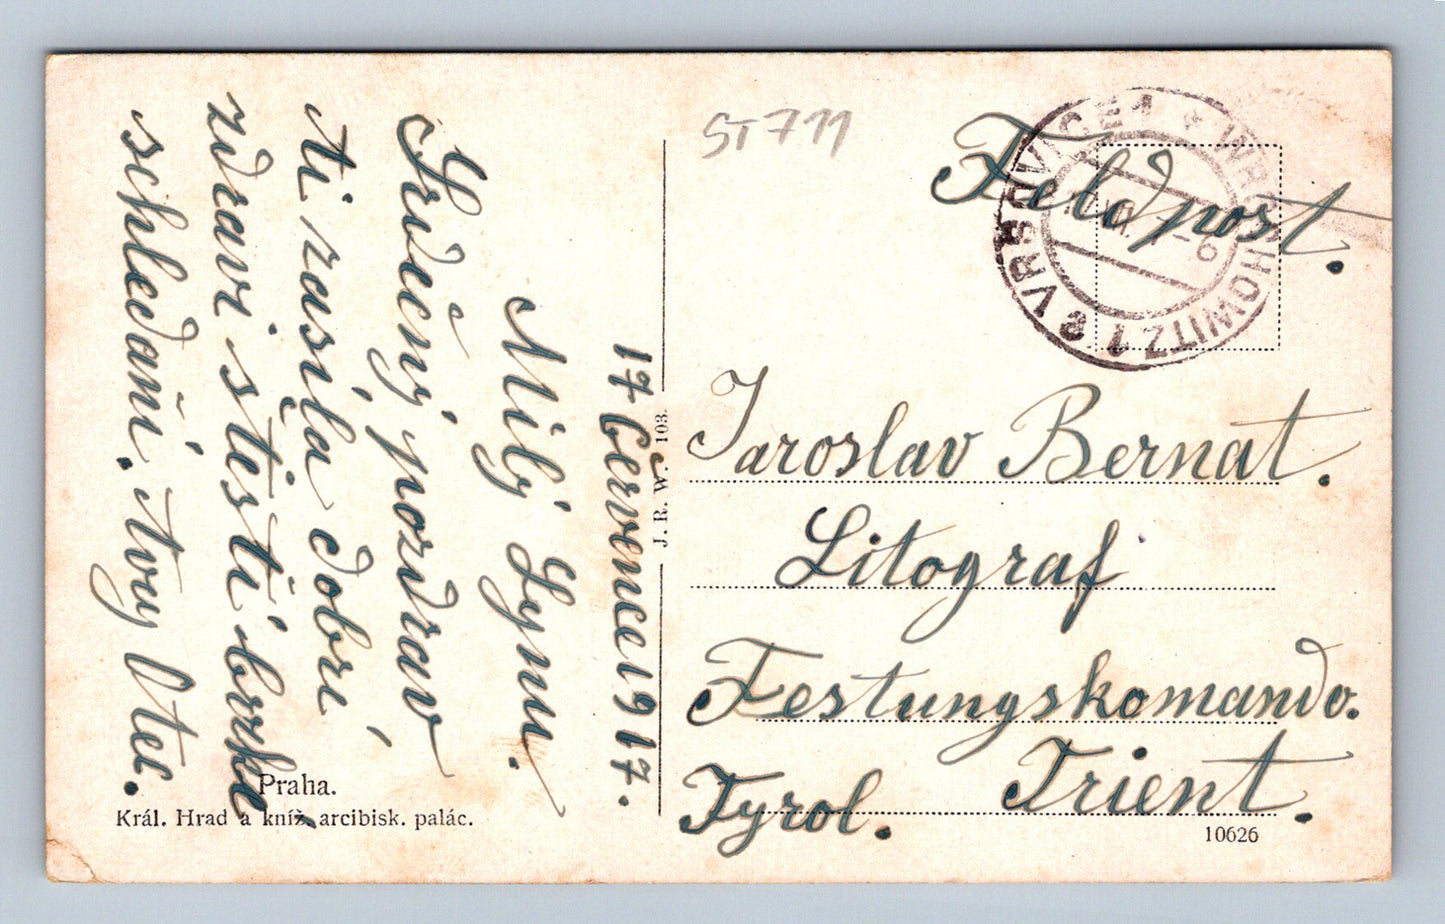 17 Července 1917.
Milý Synu.
Srdečný pozdrav
ti zasíla dobré,
zdraví štěstí brzke
schledaní. tvuj Otec.
Praha.
Král. Hrad a kníž. arcibisk. palác.
J. R. W. 103.
ST 711
Feldpost.
VRŠOVICE 1 * WRSCHOWITZ 1
Jaroslav Bernat.
Litograf
Festungskomando.
Trient.
Tyrol.
10626